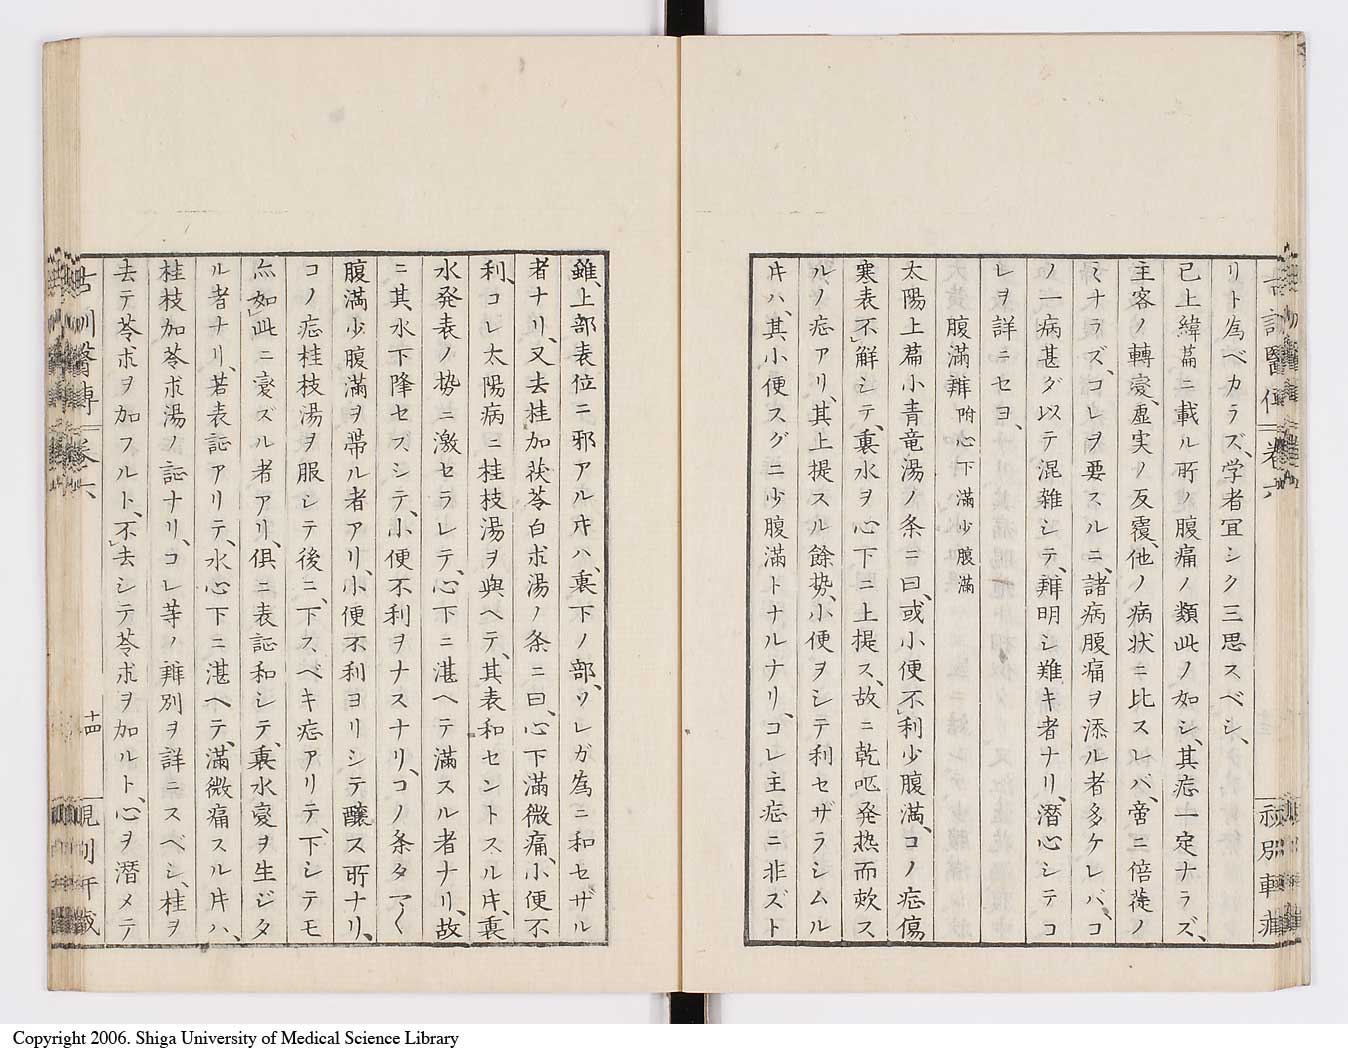 リト為ベカラズ、学者冝シク三思スベシ、
已上緯篇ニ載ル所ノ腹痛ノ類此ノ如シ、其症一定ナラズ、
主客ノ轉変、虚実ノ反覆、他ノ病状ニ比スレバ、啻ニ倍蓰ノ
ミナラズ、コレヲ要スルニ、諸病腹痛ヲ添ル者多ケレバ、コ
ノ一病甚ダ以テ混雑シテ、辨明シ難キ者ナリ、潜心シテコ
レヲ詳ニセヨ、
腹満辨 附心下満少腹満
太陽上篇小青竜湯ノ条ニ曰、或小便不利少腹満、コノ症傷
寒表不解シテ、裏水ヲ心下ニ上提ス、故ニ乾呕発热而欬ス
ルノ症アリ、其上提スル餘勢、小便ヲシテ利セザラシムル
片ハ、其小便スグニ少腹満トナルナリ、コレ主症ニ非ズト
雖、上部表位ニ邪アル片ハ、裏下ノ部、ソレガ為ニ和セザル
者ナリ、又去桂加茯苓白朮湯ノ条ニ曰、心下満微痛、小便不
利、コレ太陽病ニ桂枝湯ヲ與ヘテ、其表和セントスル片、裏
水発表ノ勢ニ激セラレテ、心下ニ湛ヘテ満スル者ナリ、故
ニ其水下降セズシテ、小便不利ヲナスナリ、コノ条タマ〱
腹満少腹満ヲ帯ル者アリ、小便不利ヨリシテ釀ス所ナリ、
コノ症桂枝湯ヲ服シテ後ニ、下スベキ症アリテ、下シテモ
亦如此ニ変ズル者アリ、俱ニ表証和シテ、裏水変ヲ生ジタ
ル者ナリ、若表証アリテ、水心下ニ湛ヘテ、満微痛スル片ハ、
桂枝加苓朮湯ノ証ナリ、コレ等ノ辨別ヲ詳ニスベシ、桂ヲ
去テ苓朮ヲ加フルト、不去シテ苓朮ヲ加ルト、心ヲ潜メテ
古訓醫傳 巻六
十四